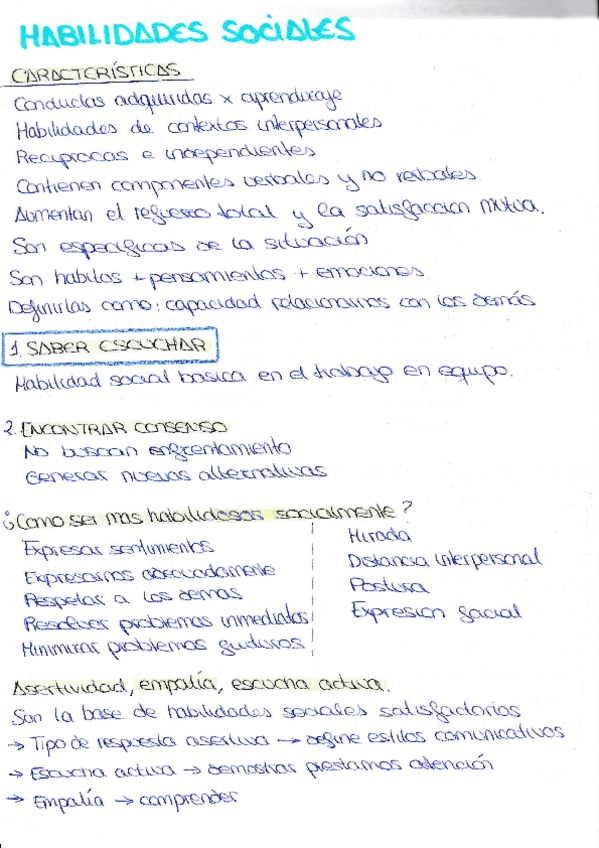 HABILIDADES SOCIALES
CARACTERÍSTICAS
Conductas adquiridas x aprendizaje
Habilidades de contextos interpersonales
Reciprocas e independientes
Contienen componentes verbales y no verbales.
Aumentan el refuerzo total y la satisfaccion mutua.
Son especificas de la situación
Son habitos + pensamientos + emociones.
Definirlas como: capacidad relacionarnos con los demás
1. SABER ESCUCHAR
Habilidad social basica en el trabajo en equipo.
2. ENCONTRAR CONSENSO
No buscan enfrentamiento
Generar nuevas alternativas
¿Como ser mas habilidosos socialmente?
Expresar sentimientos
Expresarnos adecuadamente
Respetar a los demas
Resolver problemas inmediatos
Minimizar problemas futuros
Mirada
Distancia interpersonal
Postura
Expresion facial
Asertividad, empatía, escucha activa.
Son la base de habilidades sociales satisfactorias
→ Tipo de respuesta asertiva → define estilos comunicativos
→ Escucha activa → demostrar prestamos atención
→ Empatía → comprender